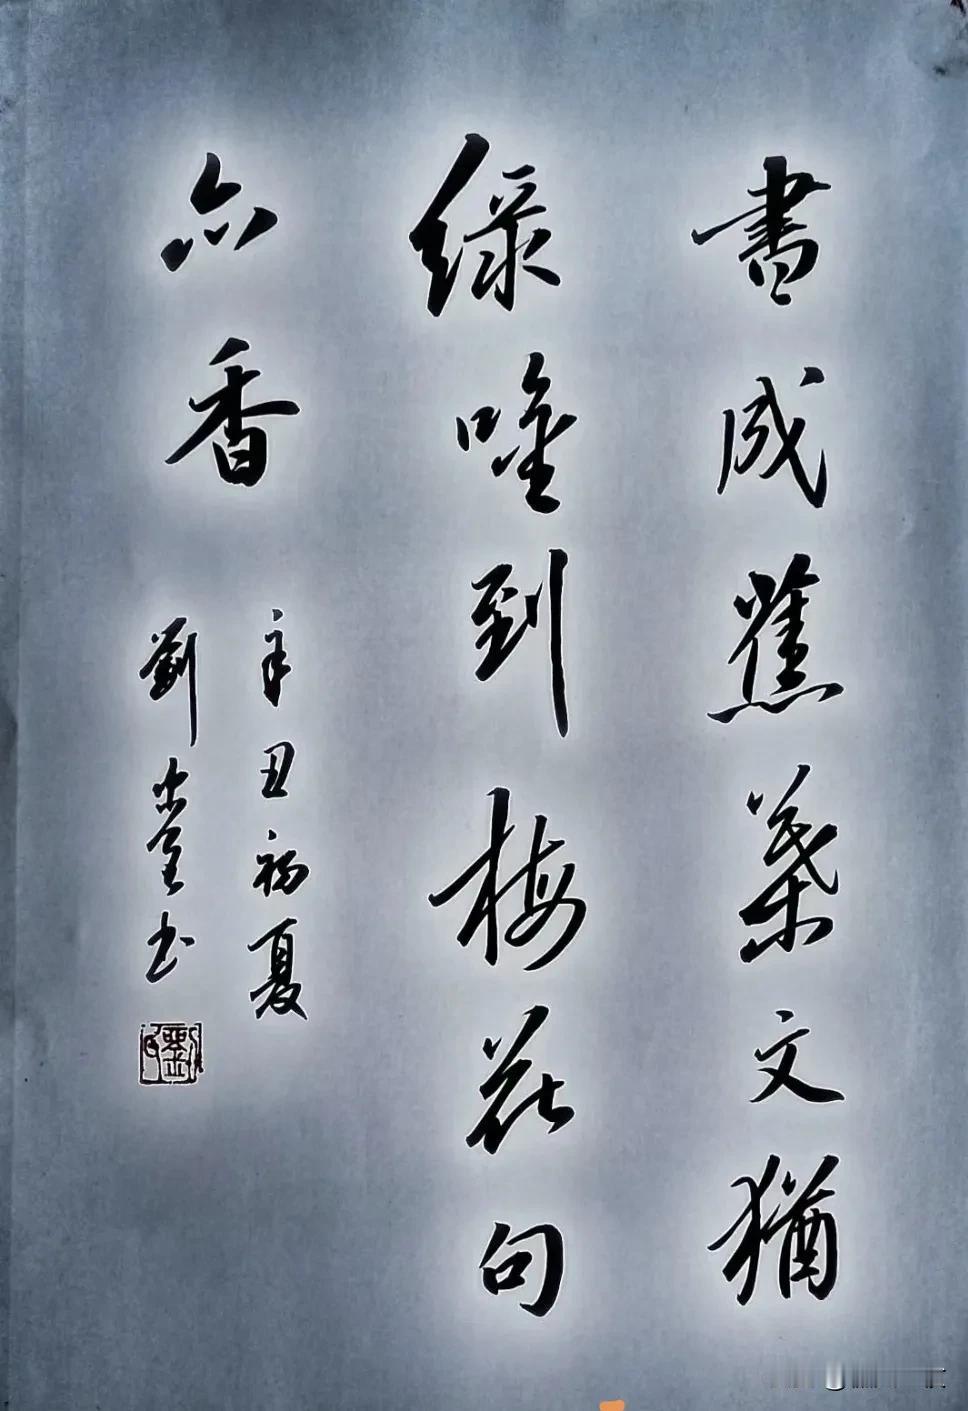 書成蕉葉文猶
綠唯到梅花句
亦香
辛丑初夏
劉
书